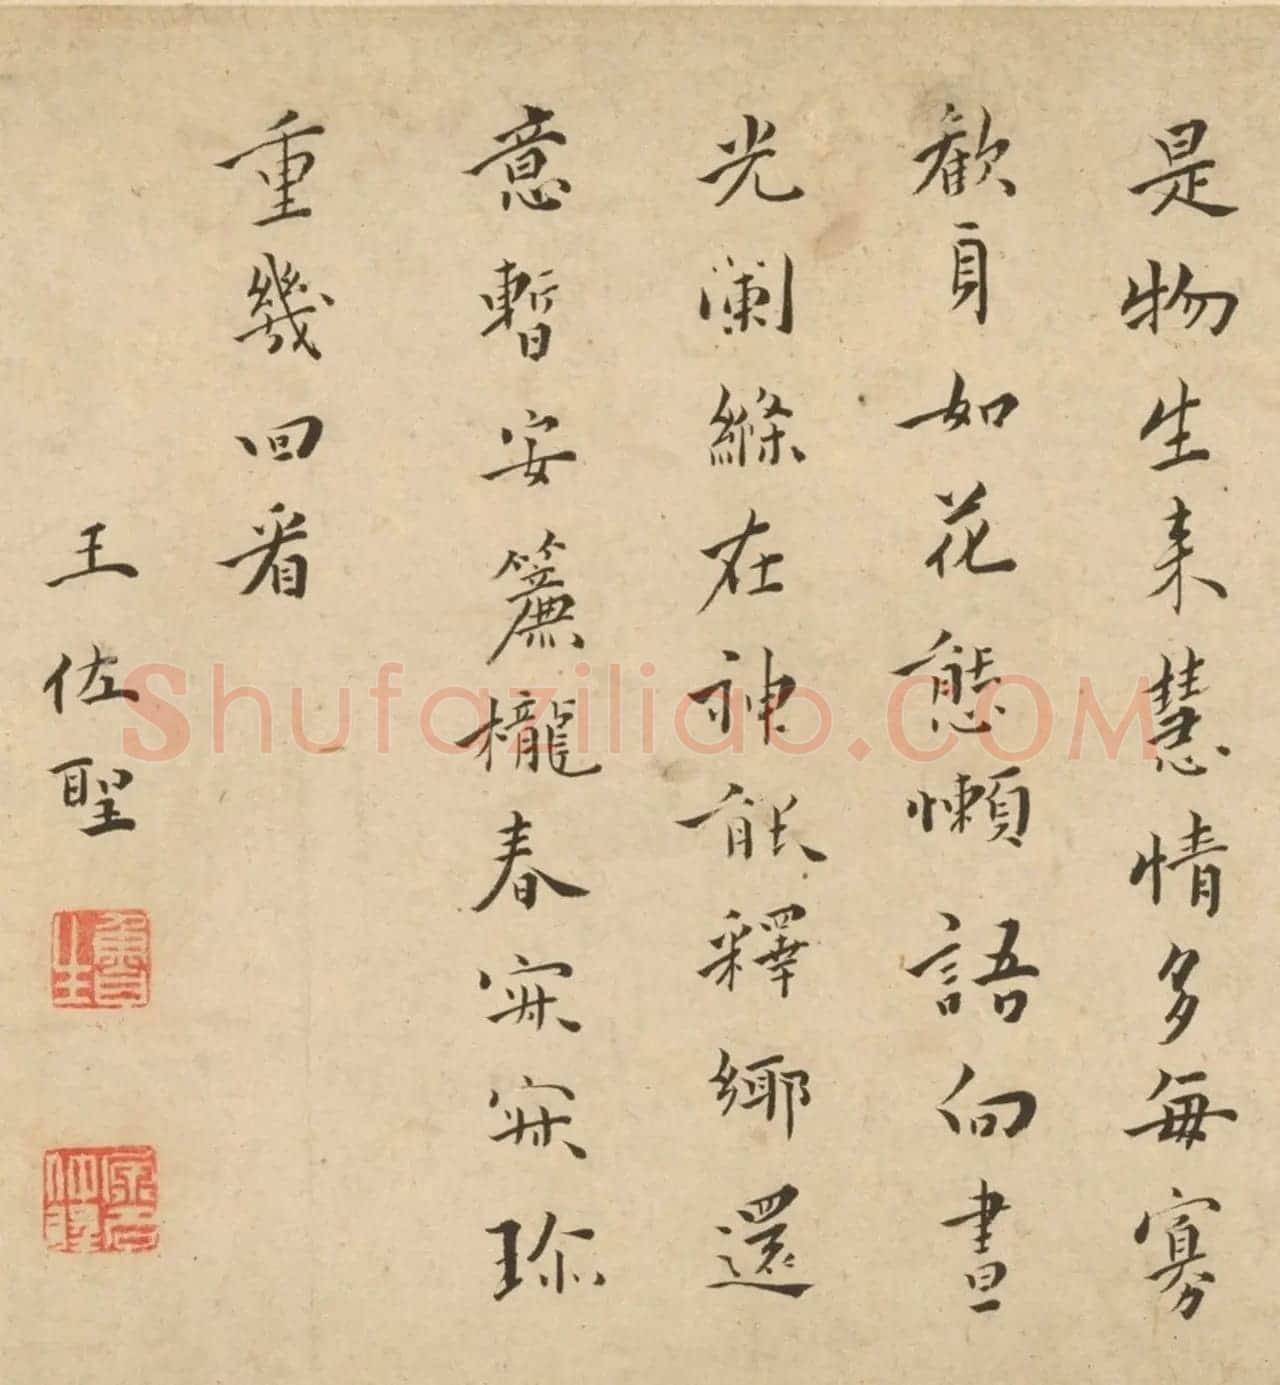 是物生来慧情多每寡
歡負如花態懶語向晝
光闌絛在神能釋
還
意暫安簾櫳春寂寂珎
重幾回看
王佐聖
Shufaziliao.COM